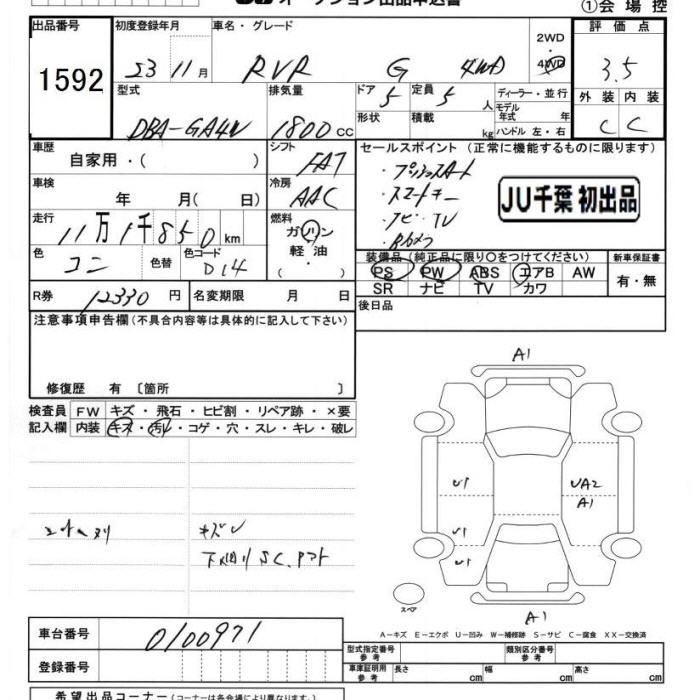 ①会場控
出品番号 初度登録年月 車名・グレード 評価点
1592 23 11月 RVR G 4WD 2WD 4WD 3.5
型式 排気量 ドア 定員 ディーラー・並行 外装 内装
DBA-GA4W 1800cc 5 5人 モデル年式 年 C C
形状 積載 kg ハンドル 左・右
車歴 シフト セールスポイント(正常に機能するものに限ります)
自家用・( ) FAT ・プッシュスタート
車検 冷房 ・スマートキー
年 月( 日) AAC ・ナビ・TV
JU千葉 初出品
走行 燃料 ・Bカメラ
11万1千850km ガソリン
軽油
・( )
色 色替 色コード 装備品(純正品に限り○をつけてください) 新車保証書
コン D14 PS PW ABS エアB AW 有・無
SR ナビ TV カワ
R券 12330円 名変期限 月 日 後日品
注意事項申告欄(不具合内容等は具体的に記入して下さい)
修復歴 有 〔箇所 〕
検査員 FW キズ・飛石・ヒビ割・リペア跡・×要
記入欄 内装 キズ・汚れ・コゲ・穴・スレ・キレ・破レ
A1
U1 UA2
A1
U1
キズU
U1
下回りSC.
スペア
A1
A-キズ E-エクボ U-凹み W-補修跡 S-サビ C-腐食 XX-交換済
車台番号 0100971 型式指定番号 参考 類別区分番号 参考
登録番号 車庫証明用 参考 長さ cm 幅 cm 高さ cm
希望出品コーナー(コーナーは各会場により異なります。)